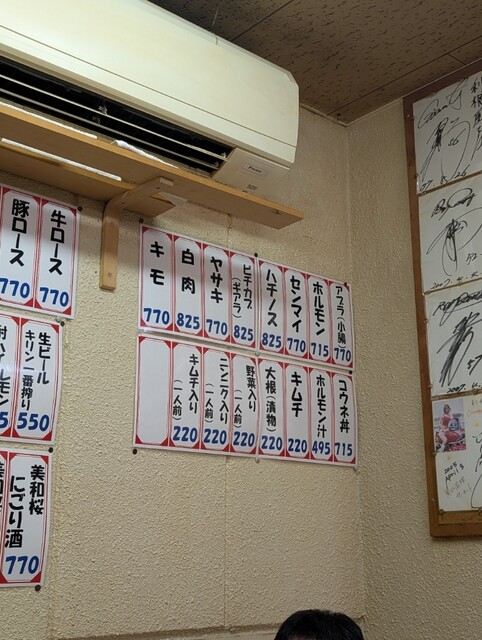 牛ロース 770
豚ロース 770
アブラ(小腸) 770
ホルモン 715
センマイ 770
ハチノス 825
ビチカブ(ギアラ) 825
ヤサキ 770
白肉 825
キモ 770
生ビール キリン一番搾り 550
コウネ丼 715
ホルモン汁 495
キムチ 220
大根(漬物) 220
野菜入り(一人前) 220
ニンニク入り(一人前) 220
キムチ入り(一人前) 220
美和桜 にごり酒 770